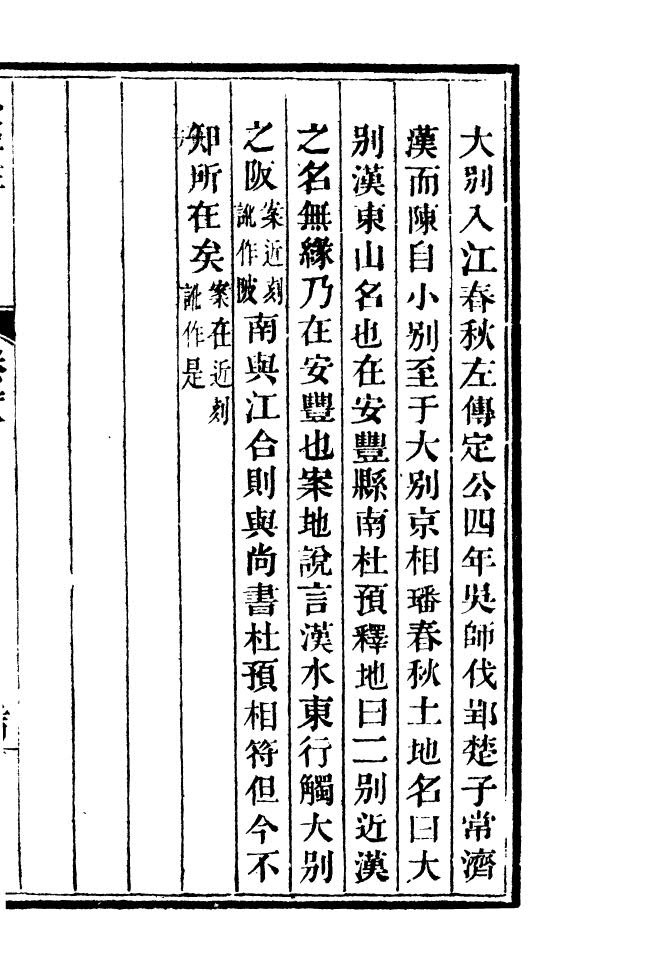 大別入江春秋左傳定公四年吳師伐郢楚子常濟
漢而陳自小別至于大別京相璠春秋土地名曰大
別漢東山名也在安豐縣南杜預釋地曰二別近漢
之名無緣乃在安豐也案地說言漢水東行觸大別
之阪案近刻訛作陂南與江合則與尚書杜預相符但今不
知所在矣案在近刻訛作是